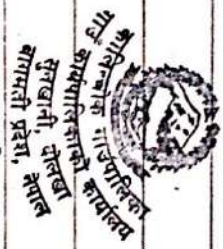 कालिन्चोक गाउँपालिका
गाउँ कार्यपालिकाको कार्यालय
सुनखानी, दोलखा
बागमती प्रदेश, नेपाल